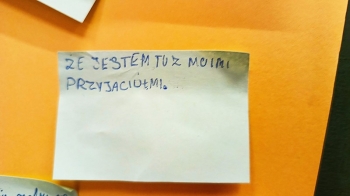 ŻE JESTEM TU Z MOIMI
PRZYJACIÓŁMI.